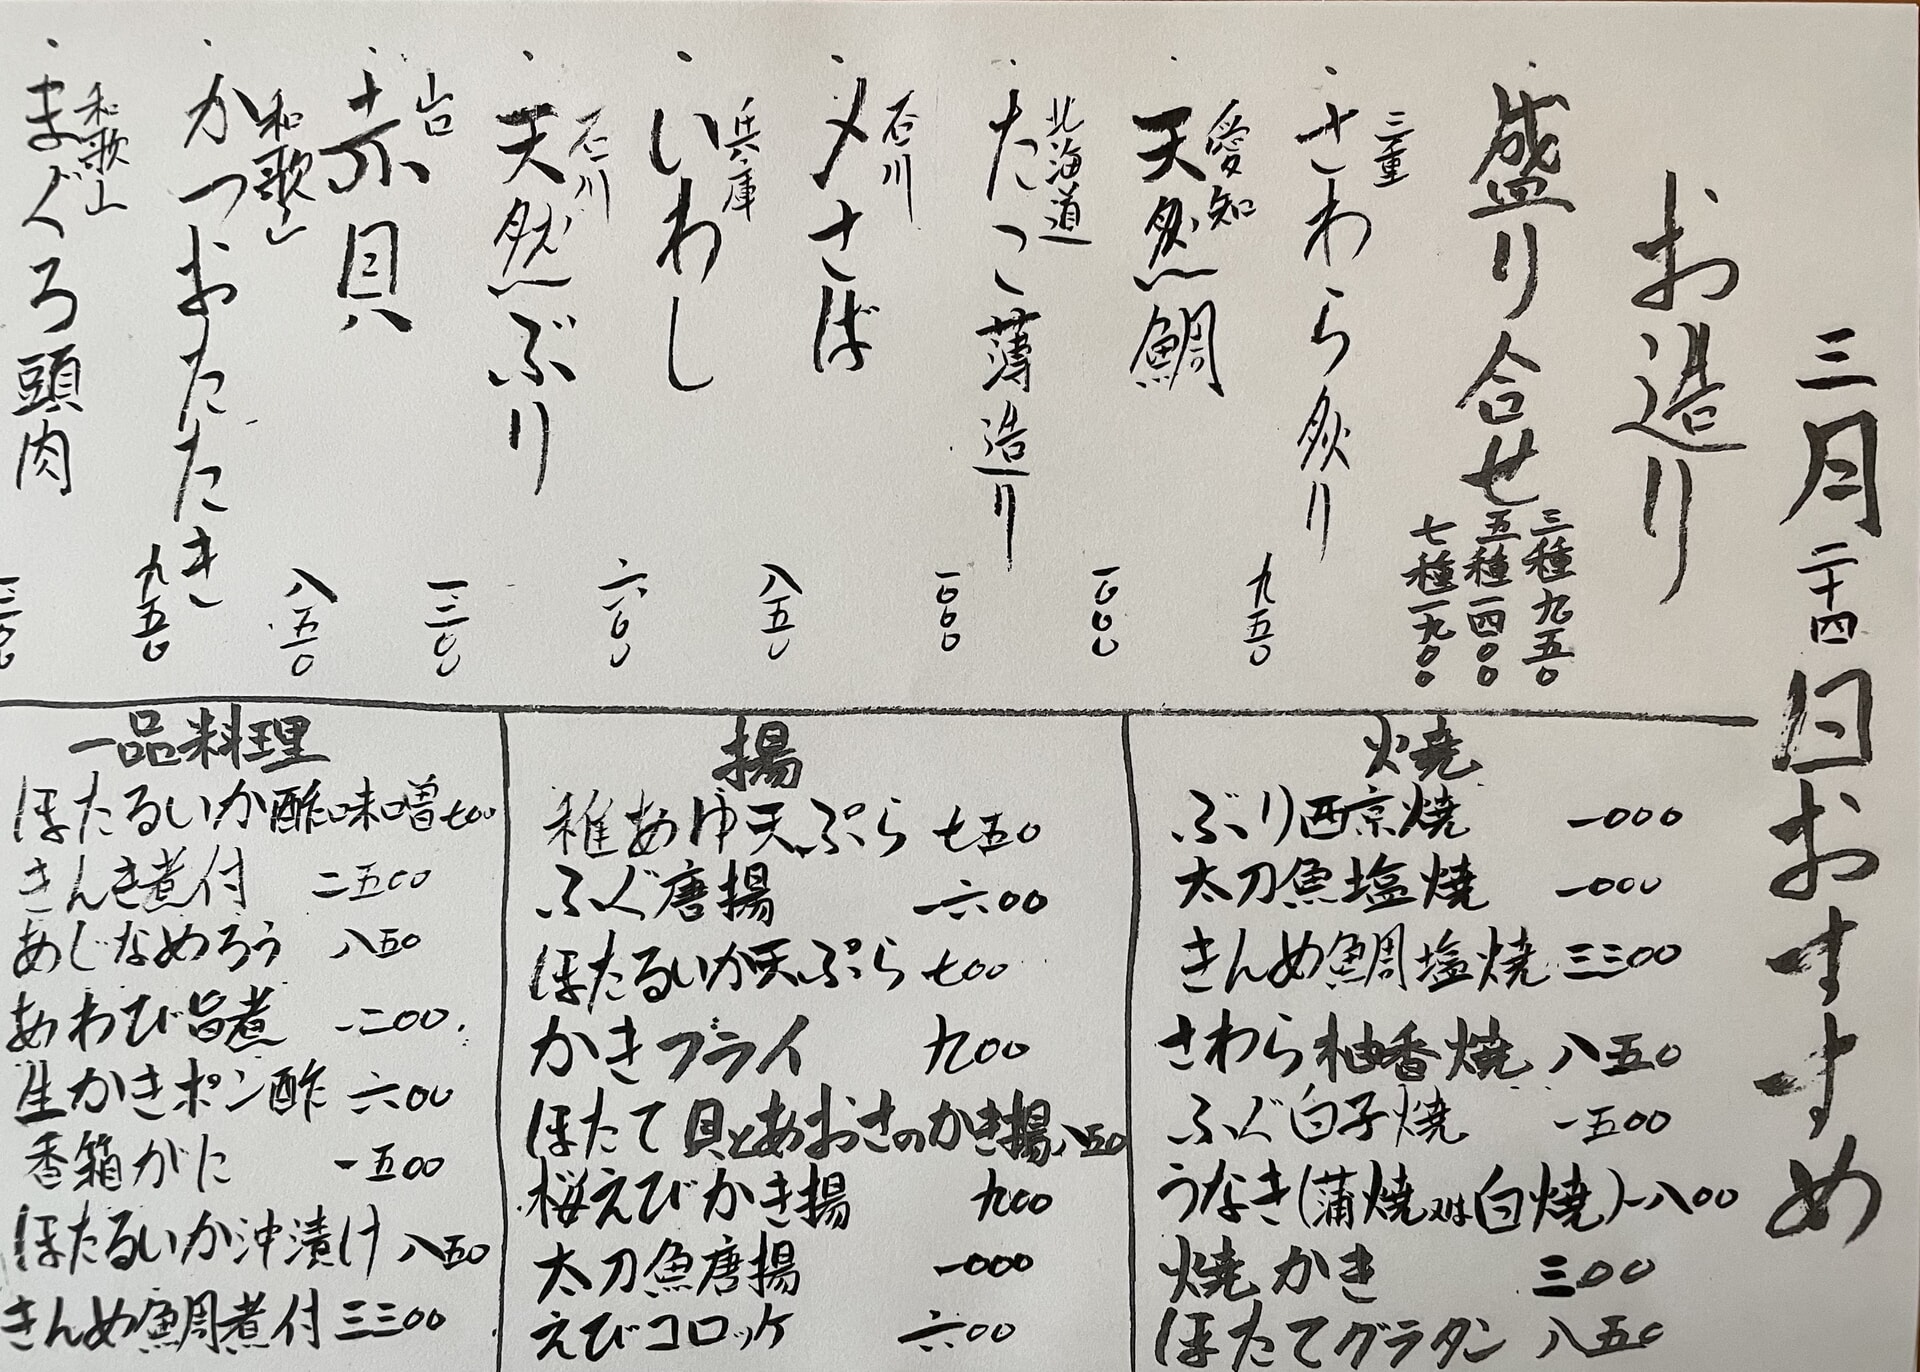 三月二十四日おすすめ
お造り
盛り合せ
三種九五〇
五種一四〇〇
七種一九〇〇
三重
さわら炙り 九五〇
愛知
天然鯛 一〇〇〇
北海道
たこ薄造り 一〇〇〇
石川
〆さば 八五〇
兵庫
いわし 六〇〇
石川
天然ぶり 一三〇〇
山口
赤貝 八五〇
和歌山
かつおたたき 九五〇
和歌山
まぐろ頭肉 一三〇〇
焼
ぶり西京焼 一〇〇〇
太刀魚塩焼 一〇〇〇
きんめ鯛塩焼 三三〇〇
さわら柚香焼 八五〇
ふぐ白子焼 一五〇〇
うなぎ(蒲焼又は白焼)一八〇〇
焼かき 三〇〇
ほたてグラタン 八五〇
揚
稚あゆ天ぷら 七五〇
ふぐ唐揚 一六〇〇
ほたるいか天ぷら 七〇〇
かきフライ 九〇〇
ほたて貝とあおさのかき揚 八五〇
桜えびかき揚 九〇〇
太刀魚唐揚 一〇〇〇
えびコロッケ 一六〇〇
一品料理
ほたるいか酢味噌 七〇〇
きんき煮付 二五〇〇
あじなめろう 八五〇
あわび旨煮 一二〇〇
生かきポン酢 六〇〇
香箱がに 一五〇〇
ほたるいか沖漬け 八五〇
きんめ鯛煮付 三三〇〇